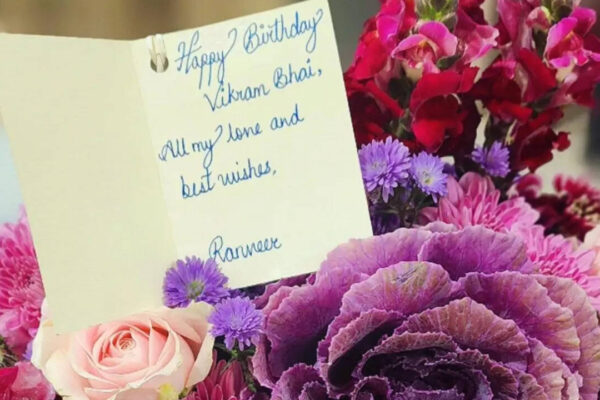 Happy Birthday
Vikram Bhai,
All my love and
best wishes,
Ranveer